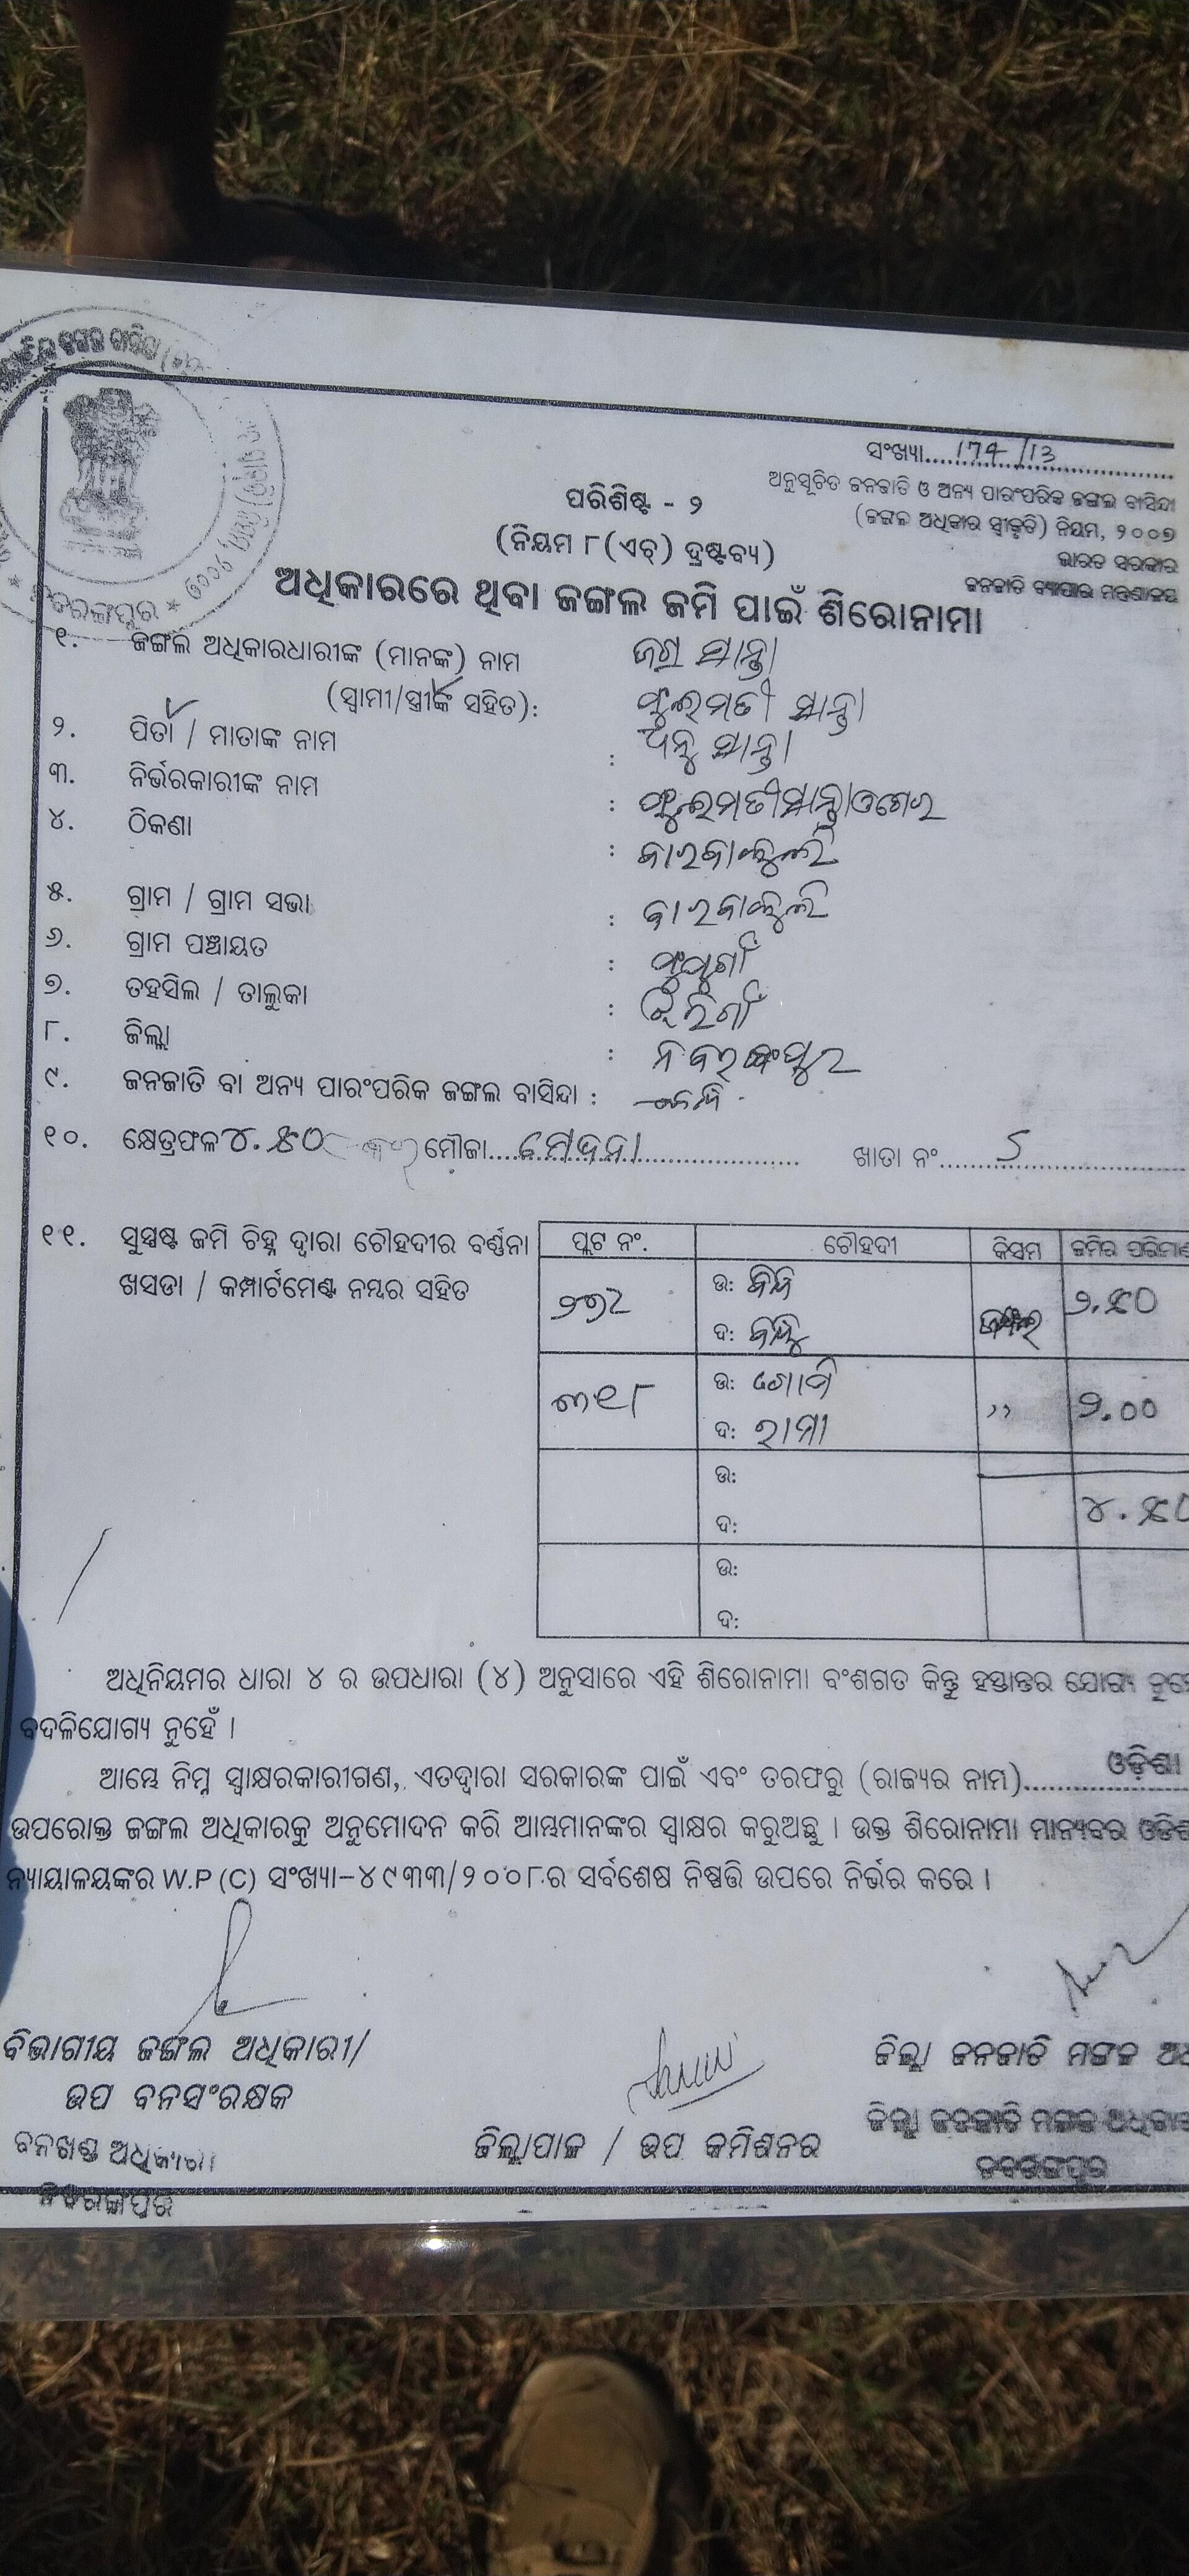 ସଂଖ୍ୟା.....174/13
ଅନୁସୂଚିତ ଜନଜାତି ଓ ଅନ୍ୟ ପାରଂପରିକ ଜଙ୍ଗଲ ବାସିନ୍ଦା
ପରିଶିଷ୍ଟ - ୨
(ଜଙ୍ଗଲ ଅଧିକାର ସ୍ୱୀକୃତି) ନିୟମ, ୨୦୦୭
(ନିୟମ ୮(ଏଚ୍) ଦ୍ରଷ୍ଟବ୍ୟ)
ଭାରତ ସରକାର
ଜନଜାତି ବ୍ୟାପାର ମନ୍ତ୍ରଣାଳୟ
ଅଧିକାରରେ ଥିବା ଜଙ୍ଗଲ ଜମି ପାଇଁ ଶିରୋନାମା
୧. ଜଙ୍ଗଲ ଅଧିକାରଧାରୀଙ୍କ (ମାନଙ୍କ) ନାମ ଜଗ ସାନ୍ତା
(ସ୍ୱାମୀ/ସ୍ତ୍ରୀଙ୍କ ସହିତ): ଫୁଲମତୀ ସାନ୍ତା
୨. ପିତା / ମାତାଙ୍କ ନାମ : ଧନୁ ସାନ୍ତା
୩. ନିର୍ଭରକାରୀଙ୍କ ନାମ : ଫୁଲମତୀ ସାନ୍ତା
୪. ଠିକଣା :
୫. ଗ୍ରାମ / ଗ୍ରାମ ସଭା :
୬. ଗ୍ରାମ ପଞ୍ଚାୟତ :
୭. ତହସିଲ / ତାଲୁକା : ଝରିଗାଁ
୮. ଜିଲ୍ଲା : ନବରଙ୍ଗପୁର
୯. ଜନଜାତି ବା ଅନ୍ୟ ପାରଂପରିକ ଜଙ୍ଗଲ ବାସିନ୍ଦା :
୧୦. କ୍ଷେତ୍ରଫଳ ୪.୫୦ ମୌଜା..... ଖାତା ନଂ.....
୧୧. ସୁସ୍ପଷ୍ଟ ଜମି ଚିହ୍ନ ଦ୍ୱାରା ଚୌହଦୀର ବର୍ଣ୍ଣନା
ଖସଡା / କମ୍ପାର୍ଟମେଣ୍ଟ ନମ୍ବର ସହିତ
ପ୍ଲଟ ନଂ. ଚୌହଦୀ କିସମ ଜମିର ପରିମାଣ
ଉ: ୨.୫୦
ଦ: ବନ୍ଧୁ ଜଙ୍ଗଲ
୩୧୮ ଉ: ଗୋପି ,, ୨.୦୦
ଦ: ରାମା
ଉ:
ଦ: ୪.୫୦
ଉ:
ଦ:
ଅଧିନିୟମର ଧାରା ୪ ର ଉପଧାରା (୪) ଅନୁସାରେ ଏହି ଶିରୋନାମା ବଂଶଗତ କିନ୍ତୁ ହସ୍ତାନ୍ତର ଯୋଗ୍ୟ
ବଦଳିଯୋଗ୍ୟ ନୁହେଁ ।
ଆମ୍ଭେ ନିମ୍ନ ସ୍ୱାକ୍ଷରକାରୀଗଣ, ଏତଦ୍ୱାରା ସରକାରଙ୍କ ପାଇଁ ଏବଂ ତରଫରୁ (ରାଜ୍ୟର ନାମ).....ଓଡ଼ିଶା
ଉପରୋକ୍ତ ଜଙ୍ଗଲ ଅଧିକାରକୁ ଅନୁମୋଦନ କରି ଆମ୍ଭମାନଙ୍କର ସ୍ୱାକ୍ଷର କରୁଅଛୁ । ଉକ୍ତ ଶିରୋନାମା ମାନ୍ୟବର
ନ୍ୟାୟାଳୟଙ୍କର W.P (C) ସଂଖ୍ୟା-୪୯୩୩/୨୦୦୮ର ସର୍ବଶେଷ ନିଷ୍ପତ୍ତି ଉପରେ ନିର୍ଭର କରେ ।
ବିଭାଗୀୟ ଜଙ୍ଗଲ ଅଧିକାରୀ/
ଉପ ବନସଂରକ୍ଷକ
ବନଖଣ୍ଡ ଅଧିକାରୀ
ଜିଲ୍ଲାପାଳ / ଉପ କମିଶନର
ଜିଲ୍ଲା ଜନଜାତି ମଙ୍ଗଳ
ଜିଲ୍ଲା ଜନଜାତି ମଙ୍ଗଳ
ନବରଙ୍ଗପୁର